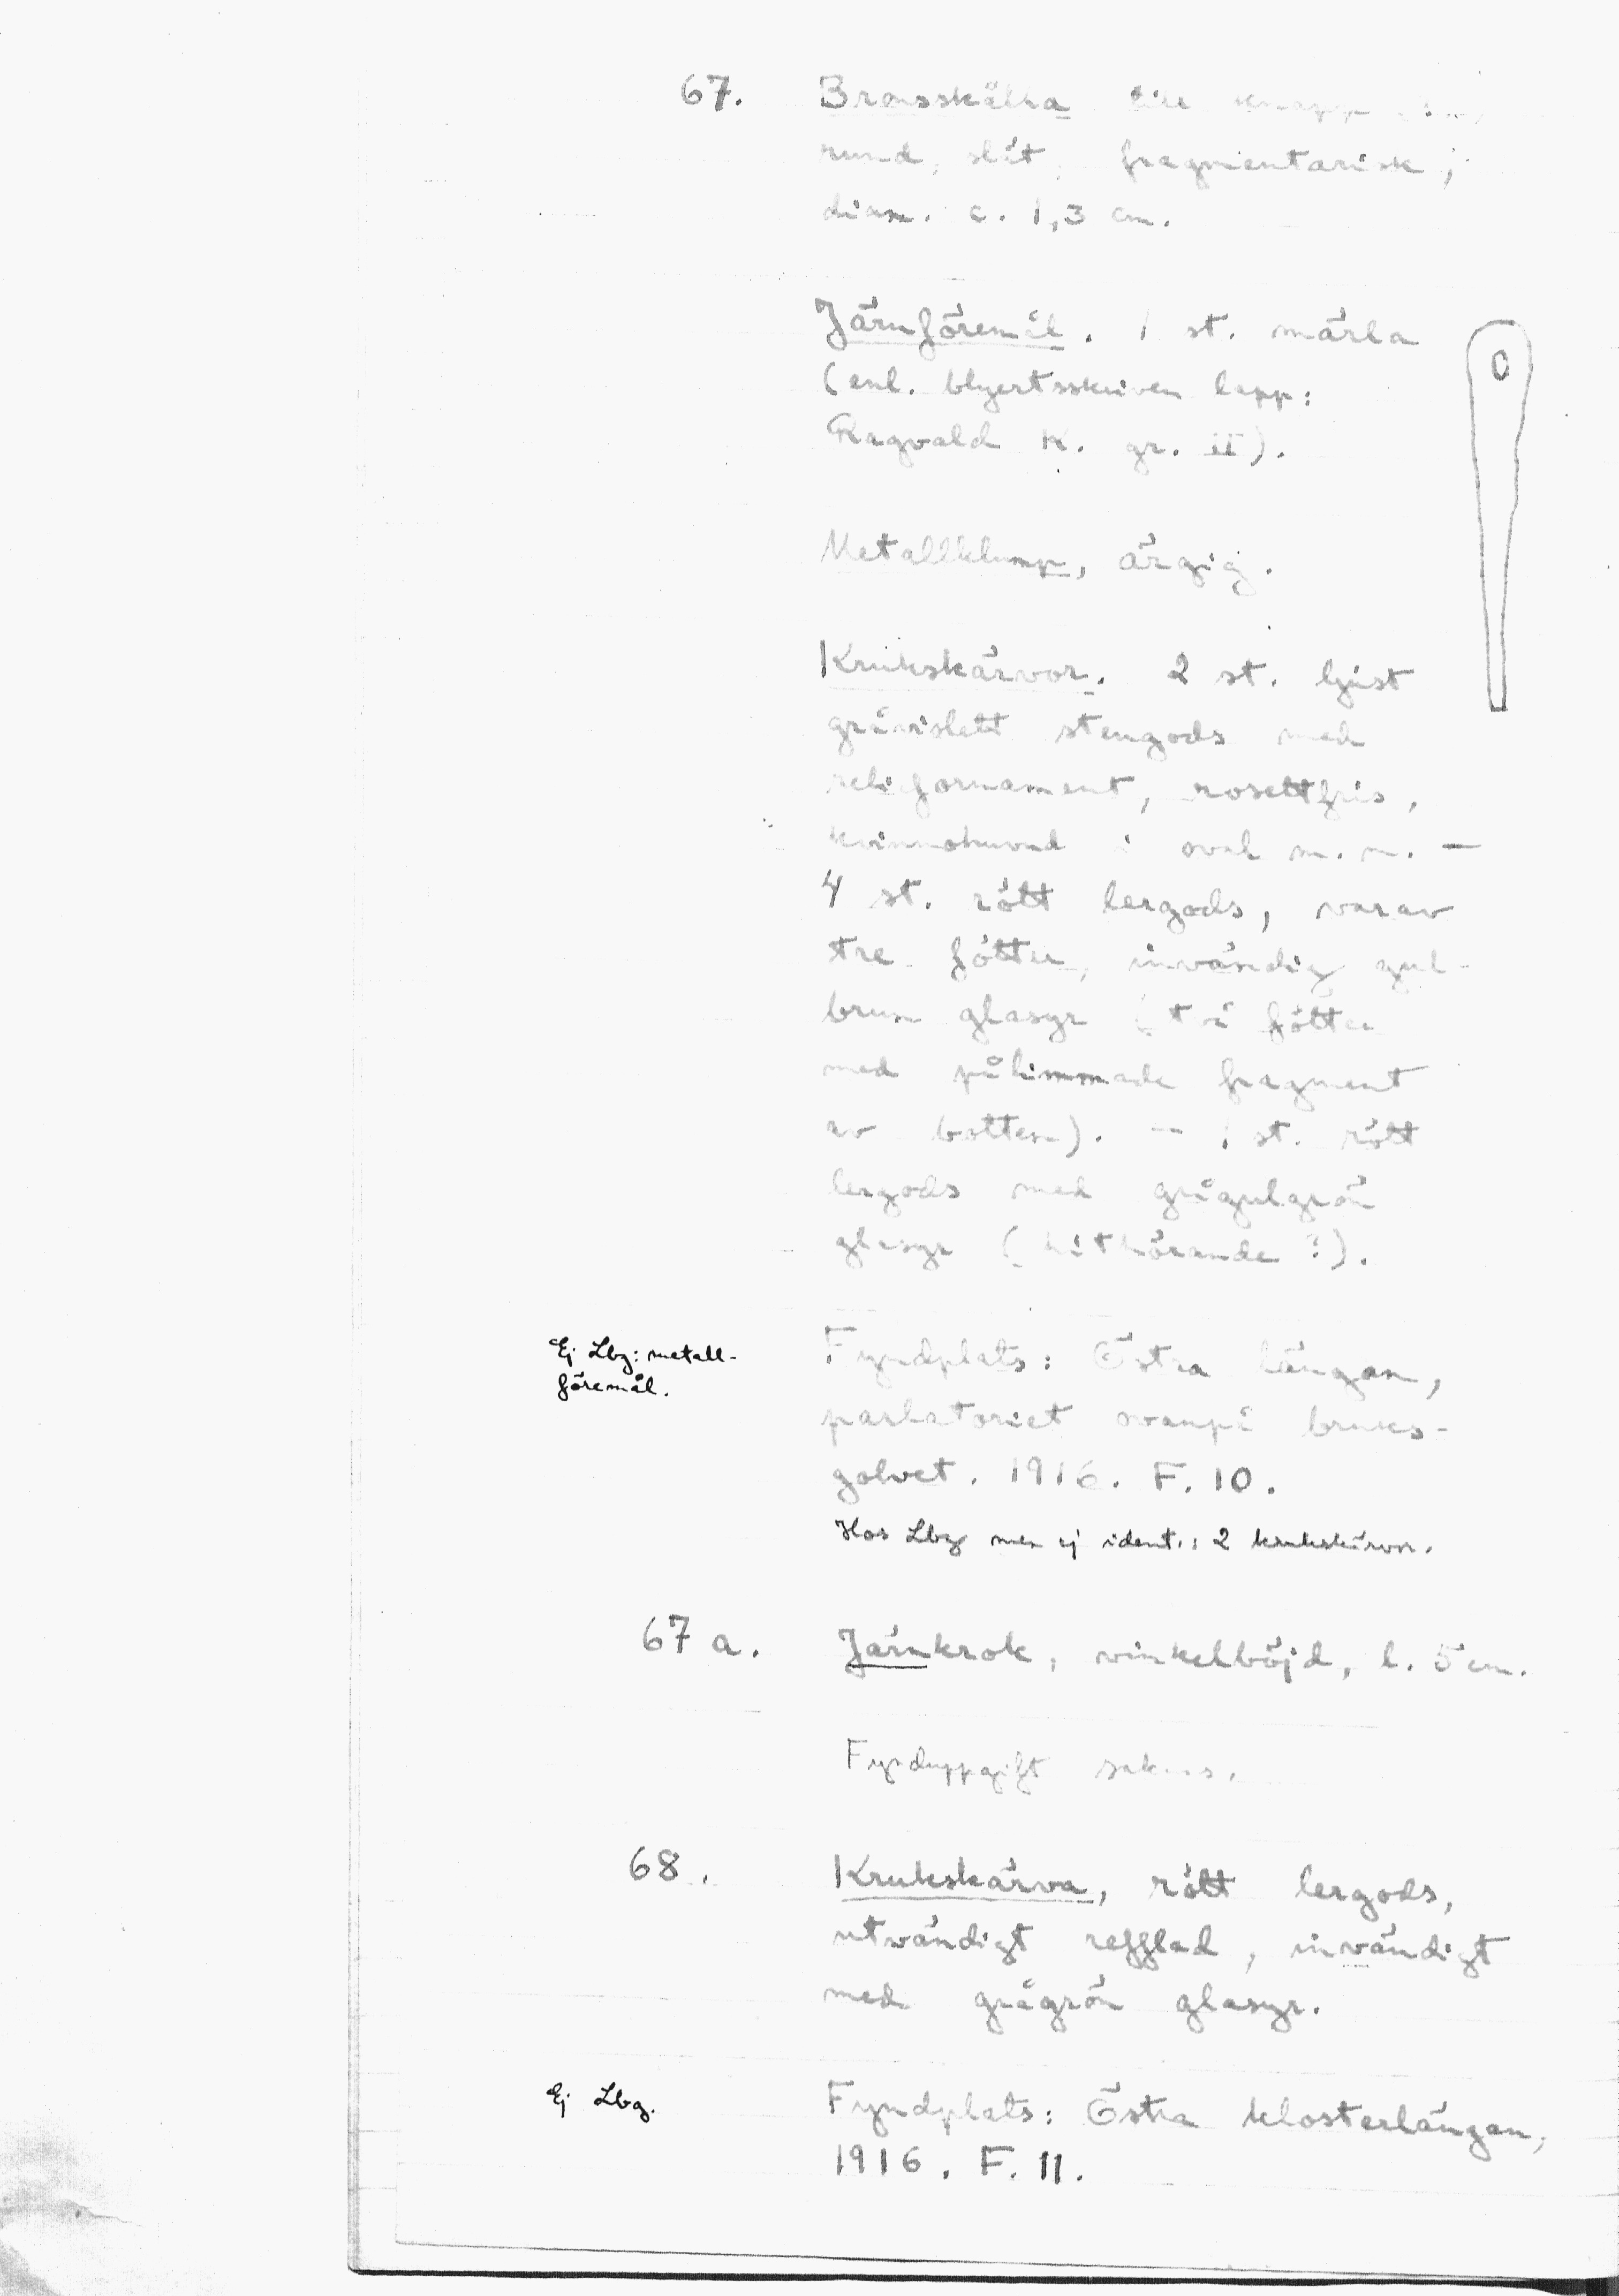 67. Bronsskålla till knapp
rund, slät, fragmentarisk;
diam. c. 1,3 cm.
Järnföremål. 1 st. märla
(enl. blyertsskriven lapp:
Ragvald K. gr. II).
Metallklump, ärgig.
Krukskärvor. 2 st. ljust
gråvislett stengods med
reliefornament, rosettfris,
kvinnohuvud i oval m. m. —
4 st. rött lergods, varav
tre fötter, invändig gul-
brun glasyr (två fötter
med pålimmade fragment
av botten). — 1 st. rött
lergods med grågulgrön
glasyr (hithörande?).
Ej Lbg: metall-
föremål.
Fyndplats: Östra längan,
parlatoriet ovanpå bruks-
golvet. 1916. F. 10.
Hos Lbg men ej ident.: 2 krukskärvor.
67 a. Järnkrok, vinkelböjd, l. 5 cm.
Fynduppgift saknas.
68. Krukskärva, rött lergods,
utvändigt refflad, invändigt
med grågrön glasyr.
Ej Lbg.
Fyndplats: Östra klosterlängan,
1916. F. 11.